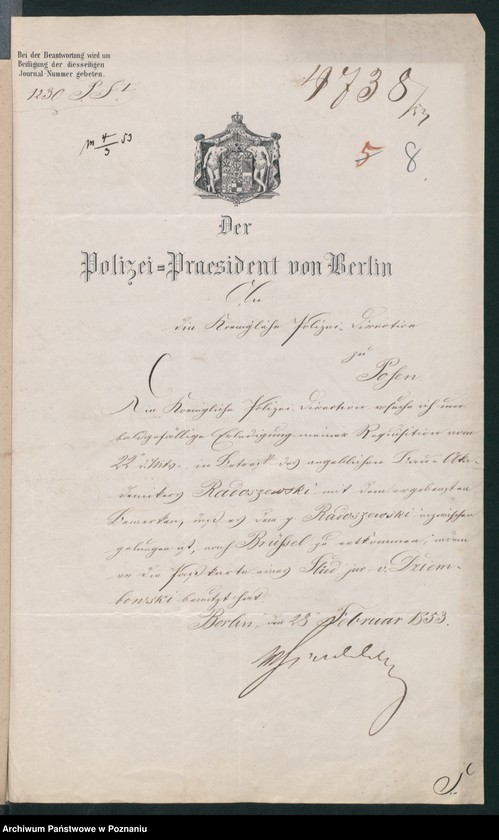 Bei der Beantwortung wird um
Beifügung der diesseitigen
Journal-Nummer gebeten.
1230 P. S. I.
4738/53
4/3 53
5 8.
Der
Polizei=Praesident von Berlin
An
die Koenigliche Polizei-Direction
zu
Posen
Die Koenigliche Polizei-Direction ersuche ich um
baldgefällige Erledigung meiner Requisition vom
22ten d. Mts. in Betreff des angeblichen Bau-Aka-
demikers Radoszewski mit dem ergebensten
Bemerken, daß es dem p. Radoszewski inzwischen
gelungen ist, nach Brüssel zu entkommen, indem
er die Paßkarte eines Stud jur v. Dziem-
bowski benutzt hat.
Berlin, den 28 Februar 1853.
Archiwum Państwowe w Poznaniu